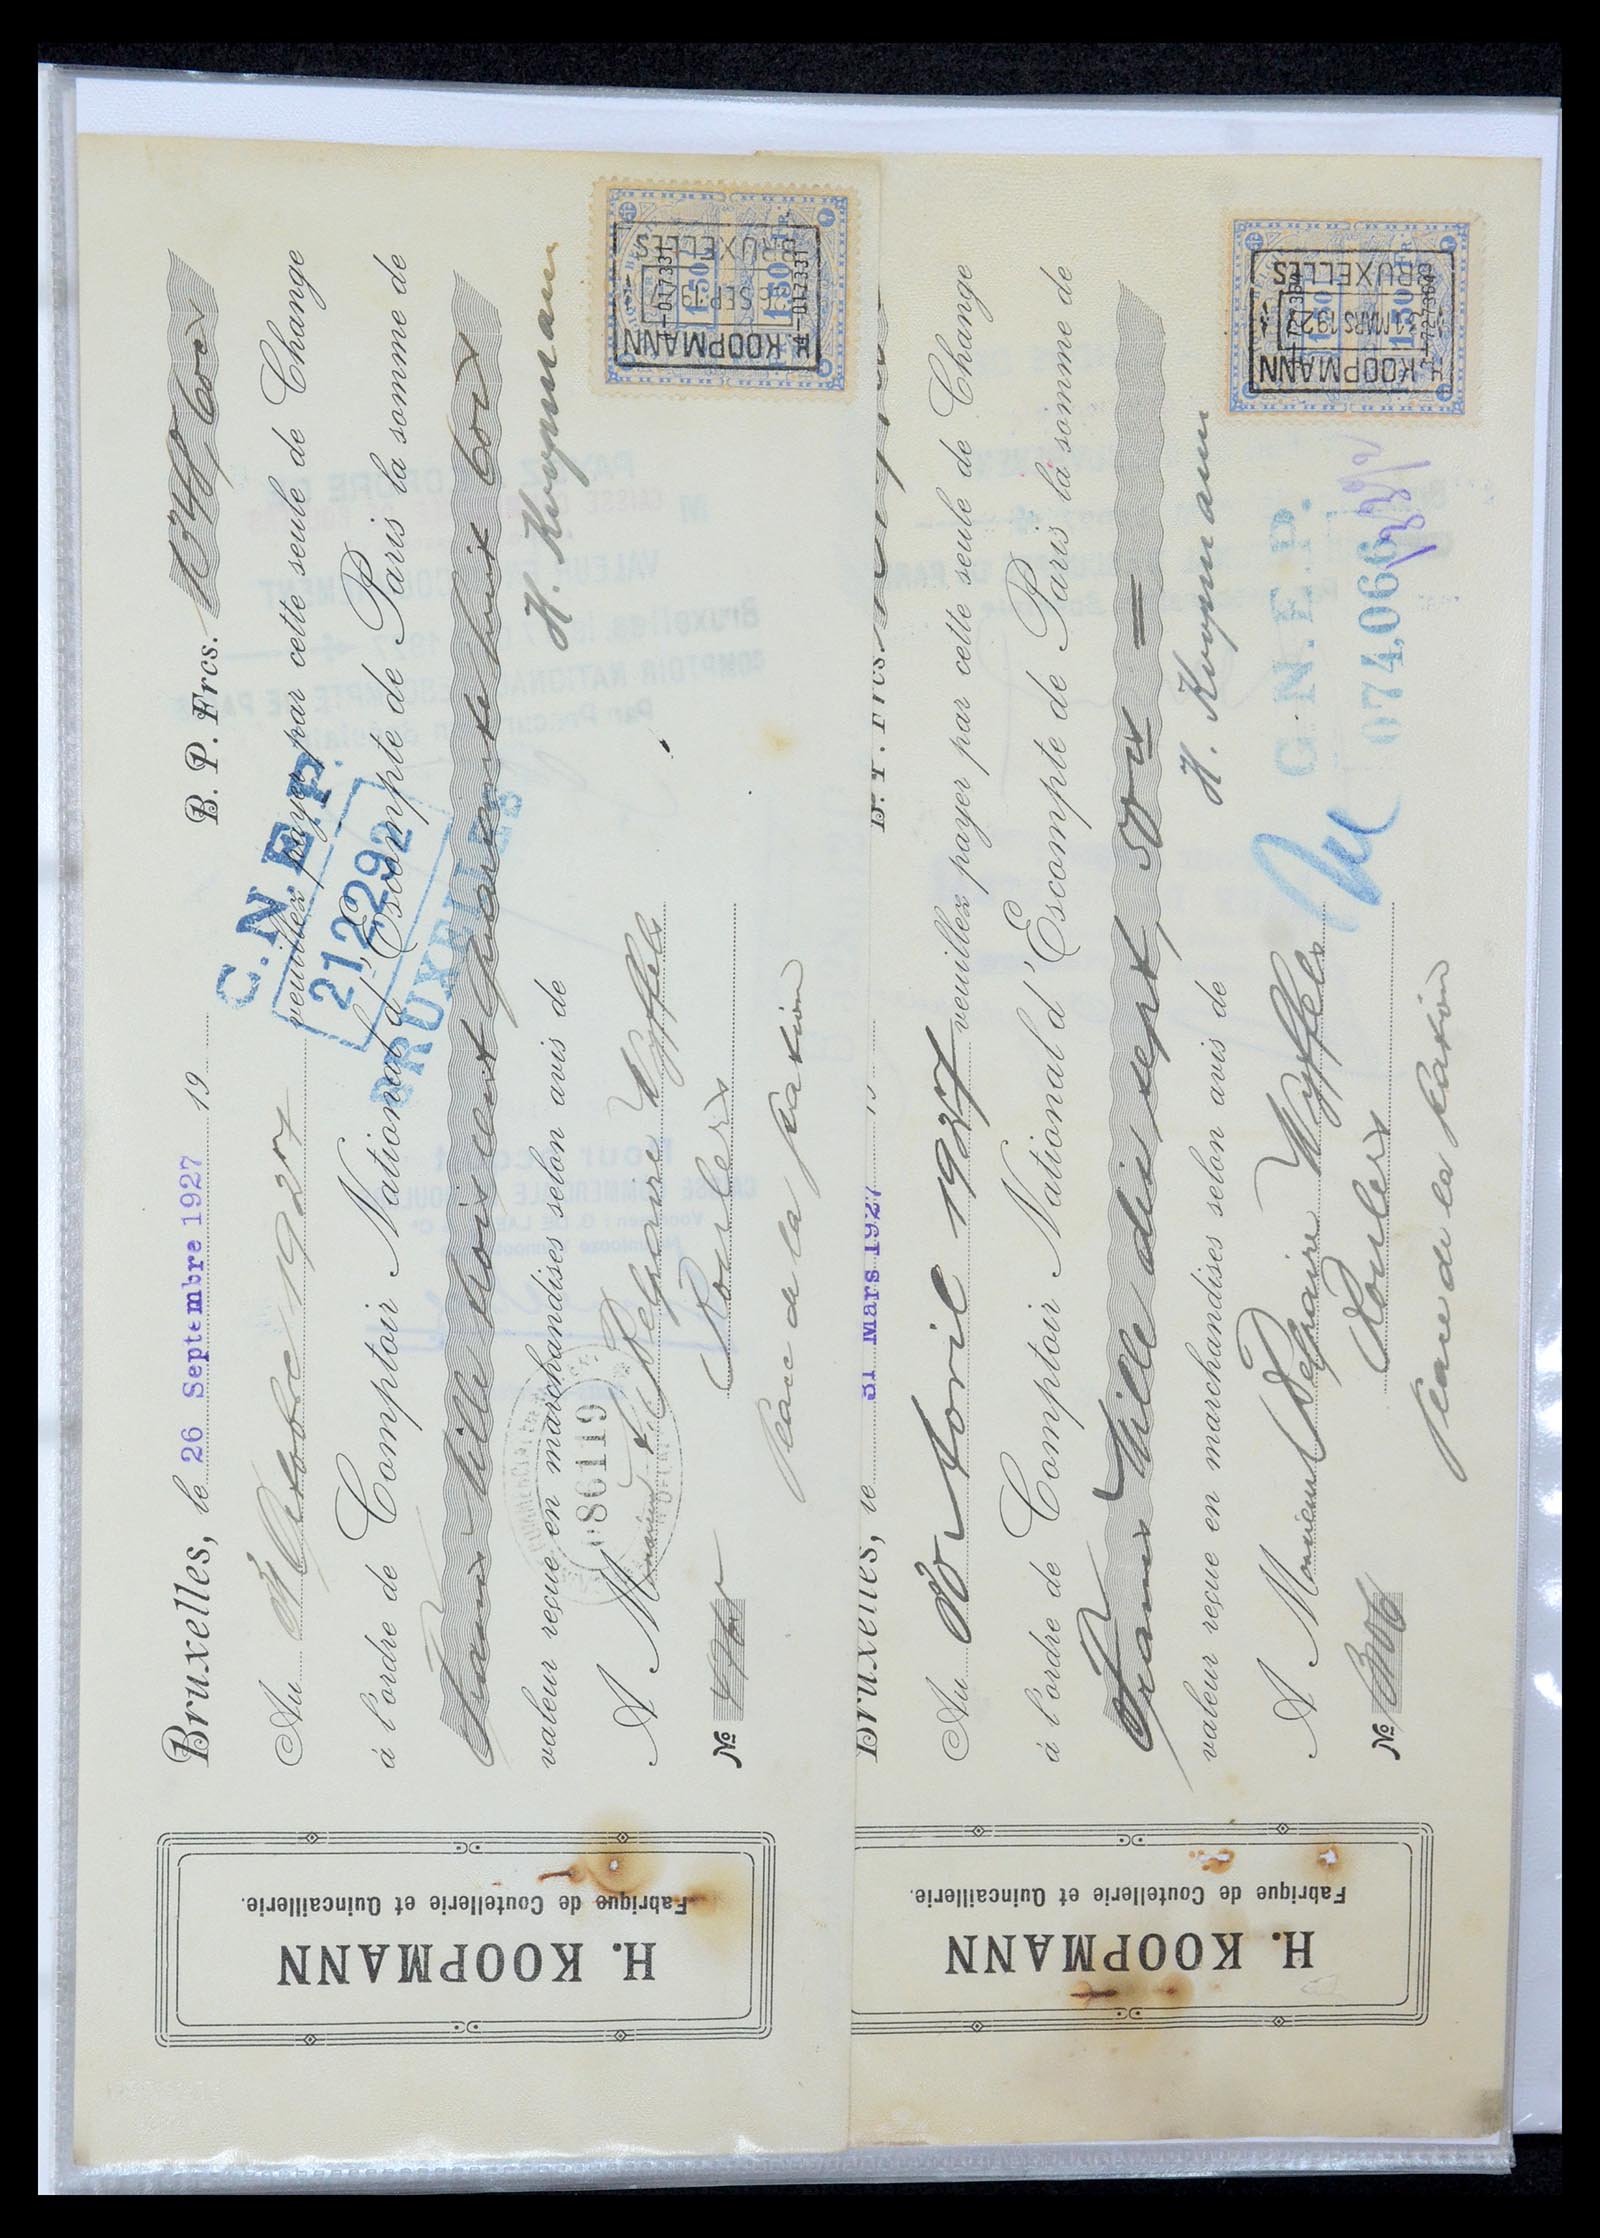 Bruxelles, le 26 Septembre 1927 19 B. P. Frcs. 1348,60 cs
Au 5 Octobre 1927 veuillez payer par cette seule de Change
à l'ordre de Comptoir National d'Escompte de Paris la somme de
Francs Mille trois cent quarante huit 60 cs
valeur reçue en marchandises selon avis de
H. Koopmann
A Monsieur Delforaire Wyffels
Roulers
Place de la Station
No
C.N.E.P.
212292
BRUXELLES
086119
H. KOOPMANN
BRUXELLES
1.50 1.50
017331 017331
H. KOOPMANN
Fabrique de Coutellerie et Quincaillerie.
PAYEZ A L'ORDRE DE
M
VALEUR EN RECOUVREMENT
Bruxelles, le 1927
COMPTOIR NATIONAL D'ESCOMPTE DE PARIS
Par Procuration Spéciale
Pour acquit
CAISSE COMMERCIALE DE ROULERS
Bruxelles, le 31 Mars 1927 19 B. P. Frcs.
Au Avril 1927 veuillez payer par cette seule de Change
à l'ordre de Comptoir National d'Escompte de Paris la somme de
Francs Mille dix sept, 50 cs =
valeur reçue en marchandises selon avis de
H. Koopmann
A Monsieur Delforaire Wyffels
Roulers
Place de la Station
No
C.N.E.P.
074,066
H. KOOPMANN
31 MARS 1927
BRUXELLES
1.50 1.50
H. KOOPMANN
Fabrique de Coutellerie et Quincaillerie.